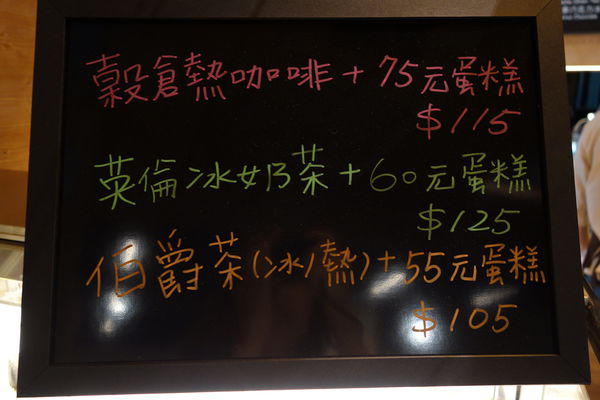 穀倉熱咖啡+75元蛋糕
$115
英倫冰奶茶+60元蛋糕
$125
伯爵茶(冰/熱)+55元蛋糕
$105